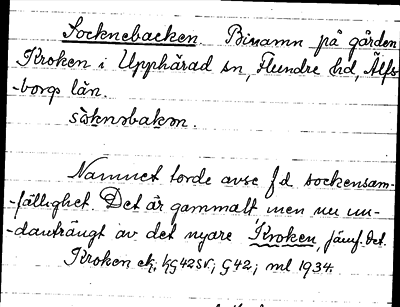 Socknebacken. Binamn på gården
Kroken i Upphärad sn, Flundre hd, Älfs-
-borgs län.
såknəbakən.
Namnet torde avse f d sockensam-
-fällighet. Det är gammalt men nu un-
-danträngt av det nyare Kroken, jämf. det.
Kroken ek, hG42SV; G42; ml 1934.